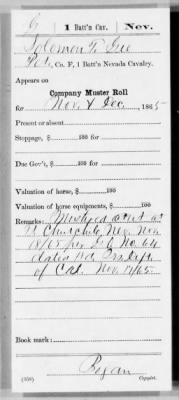 G | 1 Batt'n Cav. | Nev.
Solomon T. Gee
Pvt., Co. F, 1 Batt'n Nevada Cavalry.
Appears on
Company Muster Roll
for Nov. & Dec., 1865
Present or absent
Stoppage, $ 100 for
Due Gov't, $ 100 for
Valuation of horse, $ 100
Valuation of horse equipments, $ 100
Remarks: Mustered out at
Ft Churchill, Nev. Nov
18/65 per S.O. No. 64
dated Hd. Qrs. Dept.
of Cal. Nov
Book mark:
Ryan
(358) Copyist.